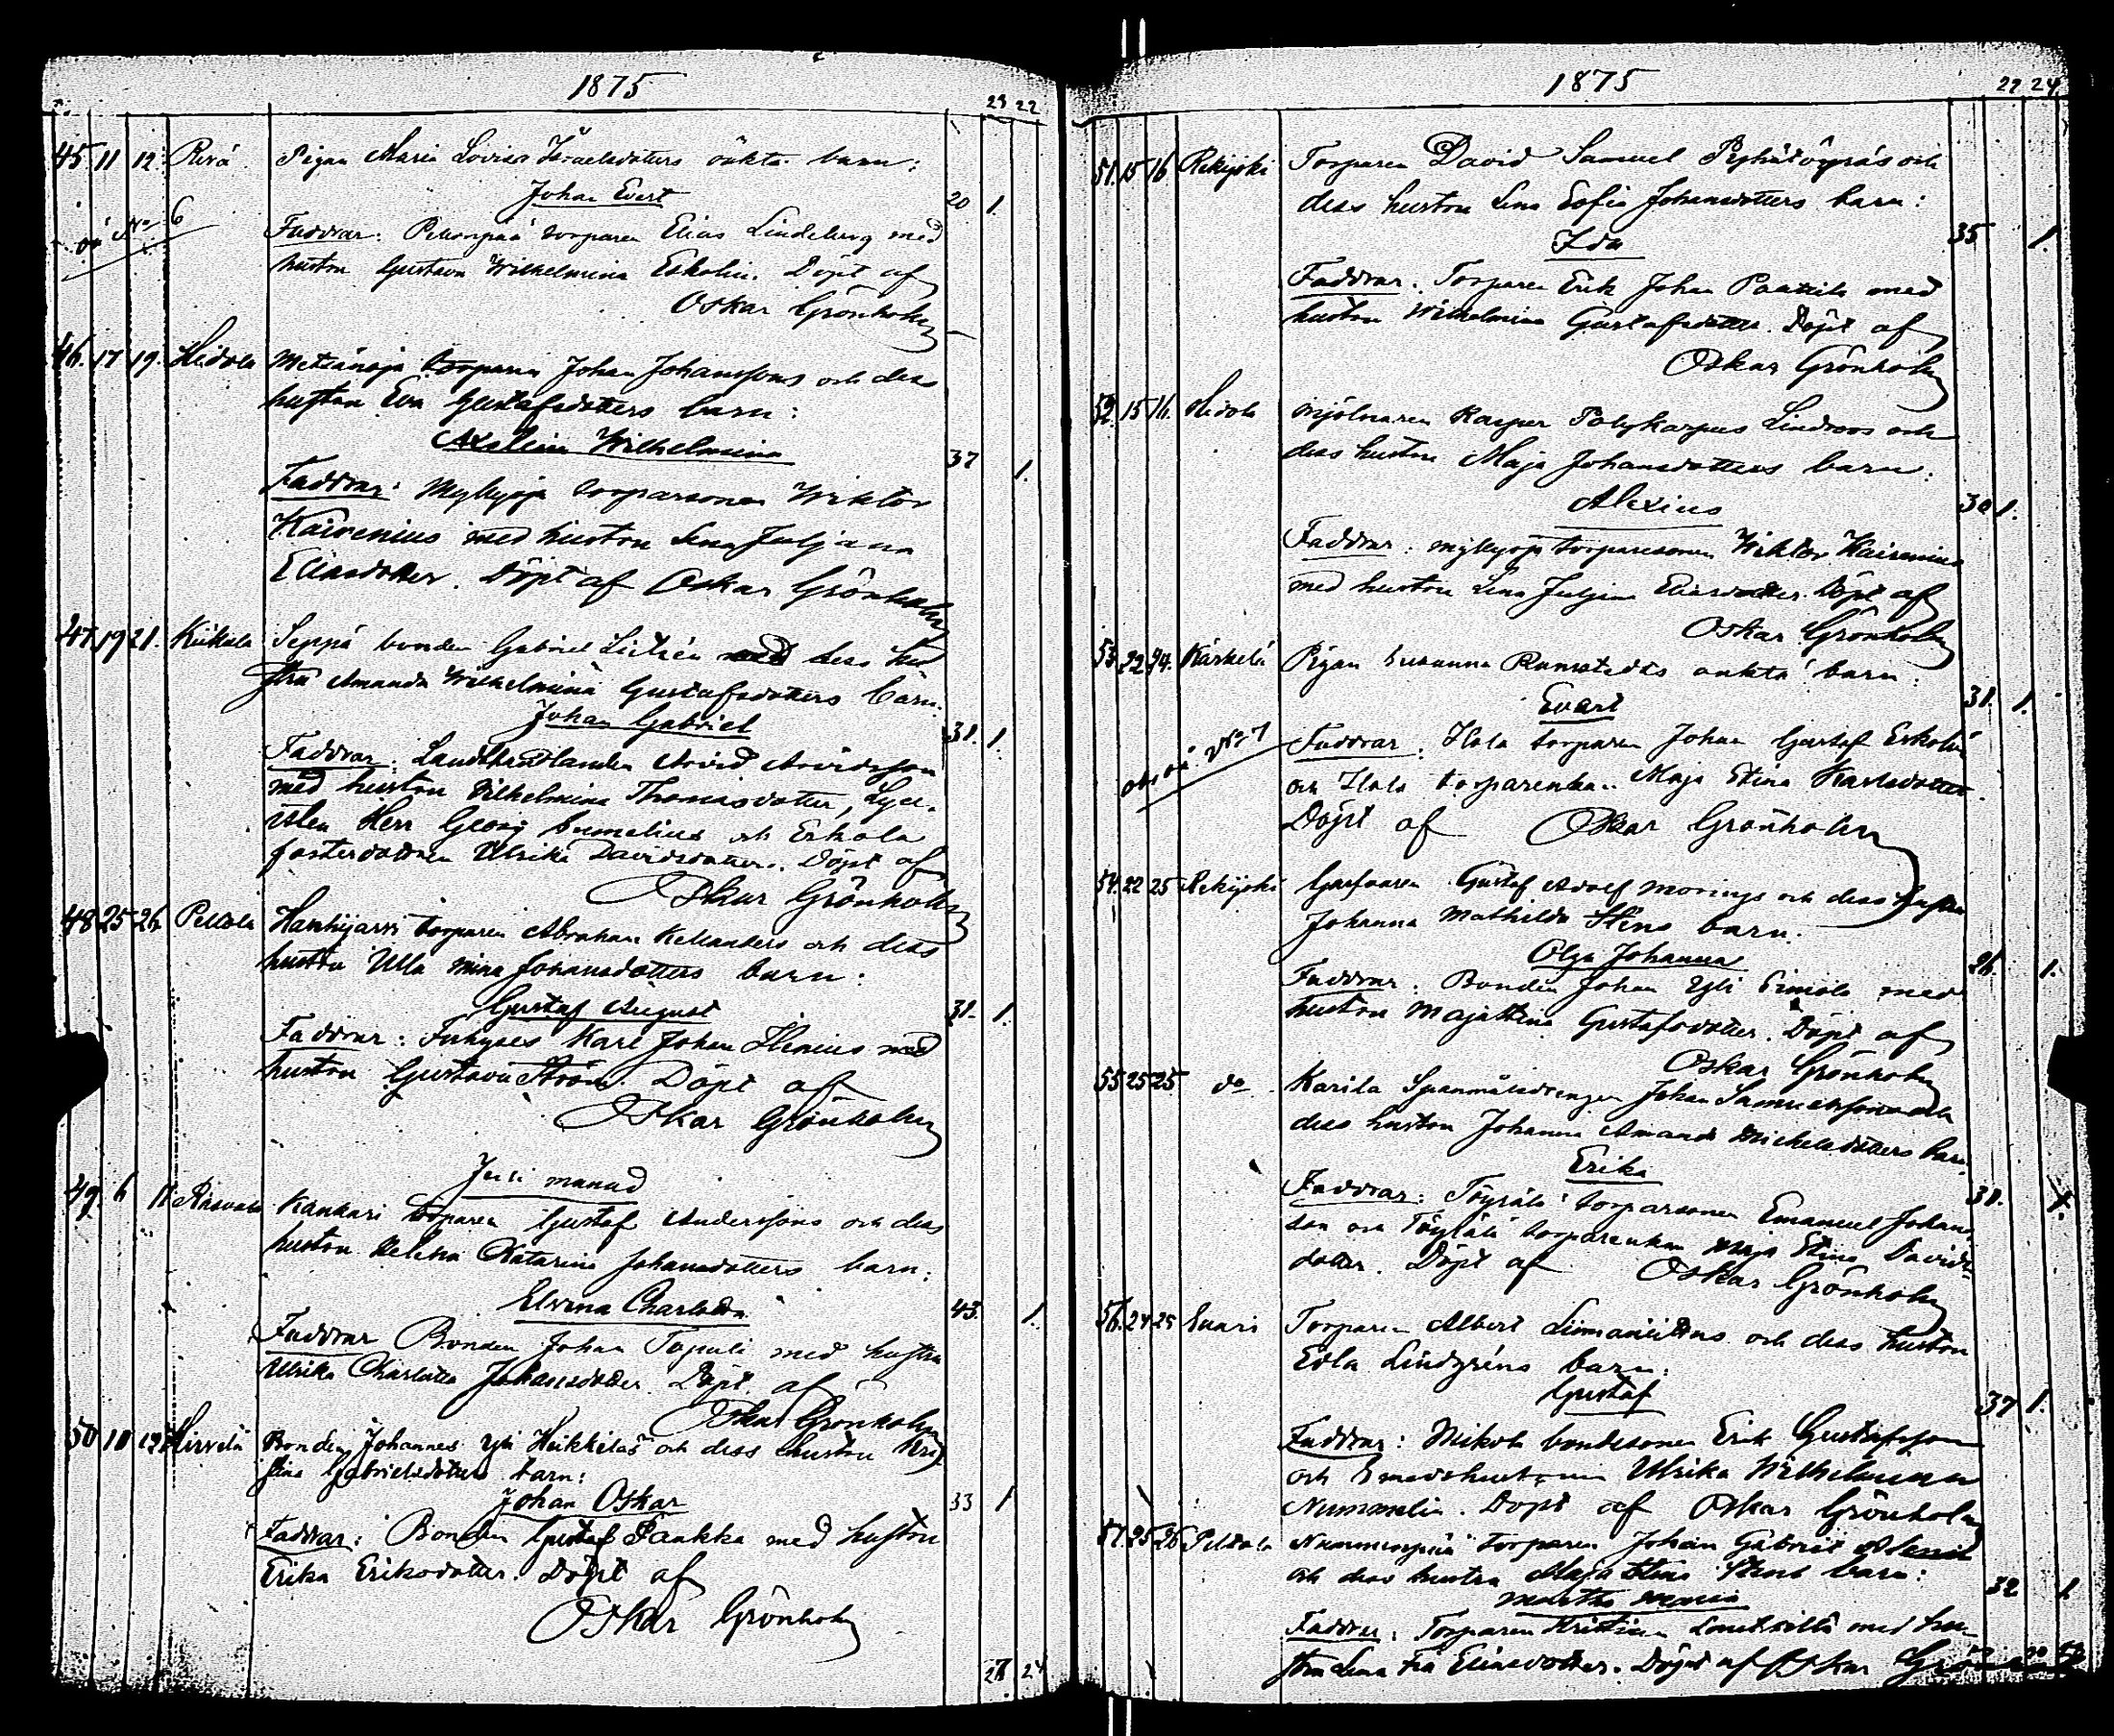 1875
23 22
45. 11 12. Rivä Pigan Maria Lovisa Israelsdotters oäkta barn:
Johan Evert 20 1.
oä No 6
Faddrar: torparen Elias Lindeberg med
hustru Gustava Wilhelmina Eskolin. Döpt af
Oskar Grönholm
46. 17 19. Hidola Metsänoja torparen Johan Johanssons och dess
hustru Eva Gustafsdotters barn:
Axelina Wilhelmina 37 1.
Faddrar: Myllyoja torparsonen Wiktor
Kairenius med hustru Lena Juljana
Eliasdotter. Döpt af Oskar Grönholm
47. 19 21. Kiikala Seppä bonden Gabriel med dess hu
stru Amanda Wilhelmina Gustafsdotters barn.
Johan Gabriel 31. 1.
Faddrar: Landthandlanden Arvid Arvidsson
med hustru Vilhelmina Thomasdotter, Lyce-
isten Herr Georg Cumelius och Erkola
fosterdottren Ulrika Davidsdotter. Döpt af
Oskar Grönholm
48 25 26. Peltola Hanhijarvi torparen Abraham Kellanders och dess
hustru Ulla Mina Johansdotters barn:
Gustaf August 31. 1.
Faddrar: Karl Johan Hlenius med
hustru Gustava Ström. Döpt af
Oskar Grönholm
Juli manad
49. 6 11. Rasvala Kankari torparen Gustaf Anderssons och dess
hustru Helena Katarina Johansdotters barn:
Elvina Charlotta 43. 1.
Faddrar Bonden Johan Tapuli med hustru
Ulrika Charlotta Johansdotter. Döpt af
Oskar Grönholm
50 10 12 Hirvelä Bonden Johannes Yli Heikkiläs och dess hustru Kri
stina Gabrielsdotters barn:
Johan Oskar 33 1
Faddrar: Bonden Gustaf Paukka med hustru
Erika Eriksdotter. Döpt af
Oskar Grönholm
27 24
1875
27 24
51. 15 16 Rekijoki Torparen David Samuel och
dess hustru Lena Sofia Johansdotters barn:
Ida 35 1.
Faddrar. Torparen Erik Johan med
hustru Wilhelmina Gustafsdotter. Döpt af
Oskar Grönholm
52. 15 16. Hidola Mjölnaren Kasper Polykarpus Lindroos och
dess hustru Maja Johansdotters barn:
Alexius 30 1.
Faddrar: Myllyoja torparesonen Wiktor Kairenius
med hustru Lena Juljana Eliasdotter. Döpt af
Oskar Grönholm
53 22 24. Kärkelä Pigan Susanna Ramstedts oäkta barn:
Evert 31. 1.
oä No 7
Faddrar. Ilola torparen Johan Gustaf Eskolin
och Ilola torparenkan Maja Stina Karlsdotter.
Döpt af Oskar Grönholm
54. 22 25 Rekijoki Garfvaren Gustaf Adolf Morings och dess hustru
Johanna Mathilda Stens barn.
Olga Johanna 26. 1.
Faddrar. Bonden Johan Yli Simola med
hustru Maja Stina Gustafsdotter. Döpt af
Oskar Grönholm
55 25 25 do Karila Spanmålsdrengen Johan Samuelssons och
dess hustru Johanna Amanda Michelsdotters barn.
Erika 31. 1.
Faddrar: Töyrälä torparsonen Emanuel Johans-
son och torparenkan Maja Stina Davids-
dotter. Döpt af Oskar Grönholm
56. 24 25 Suari Torparen Albert och dess hustru
Edla Lindgréns barn:
Gustaf 37 1.
Faddrar: Mikola bondesonen Erik Gustafsson
och Smedshustrun Ulrika Wilhelmina
Nummelin. Döpt af Oskar Grönholm
57. 25 26 Peltola Nummenpää torparen Johan Gabriel
och dess hustru Maja Stina barn:
Martha Maria 32 1
Faddrar: Torparen Kristian med hu-
stru Lena Eliasdotter. Döpt af Oskar